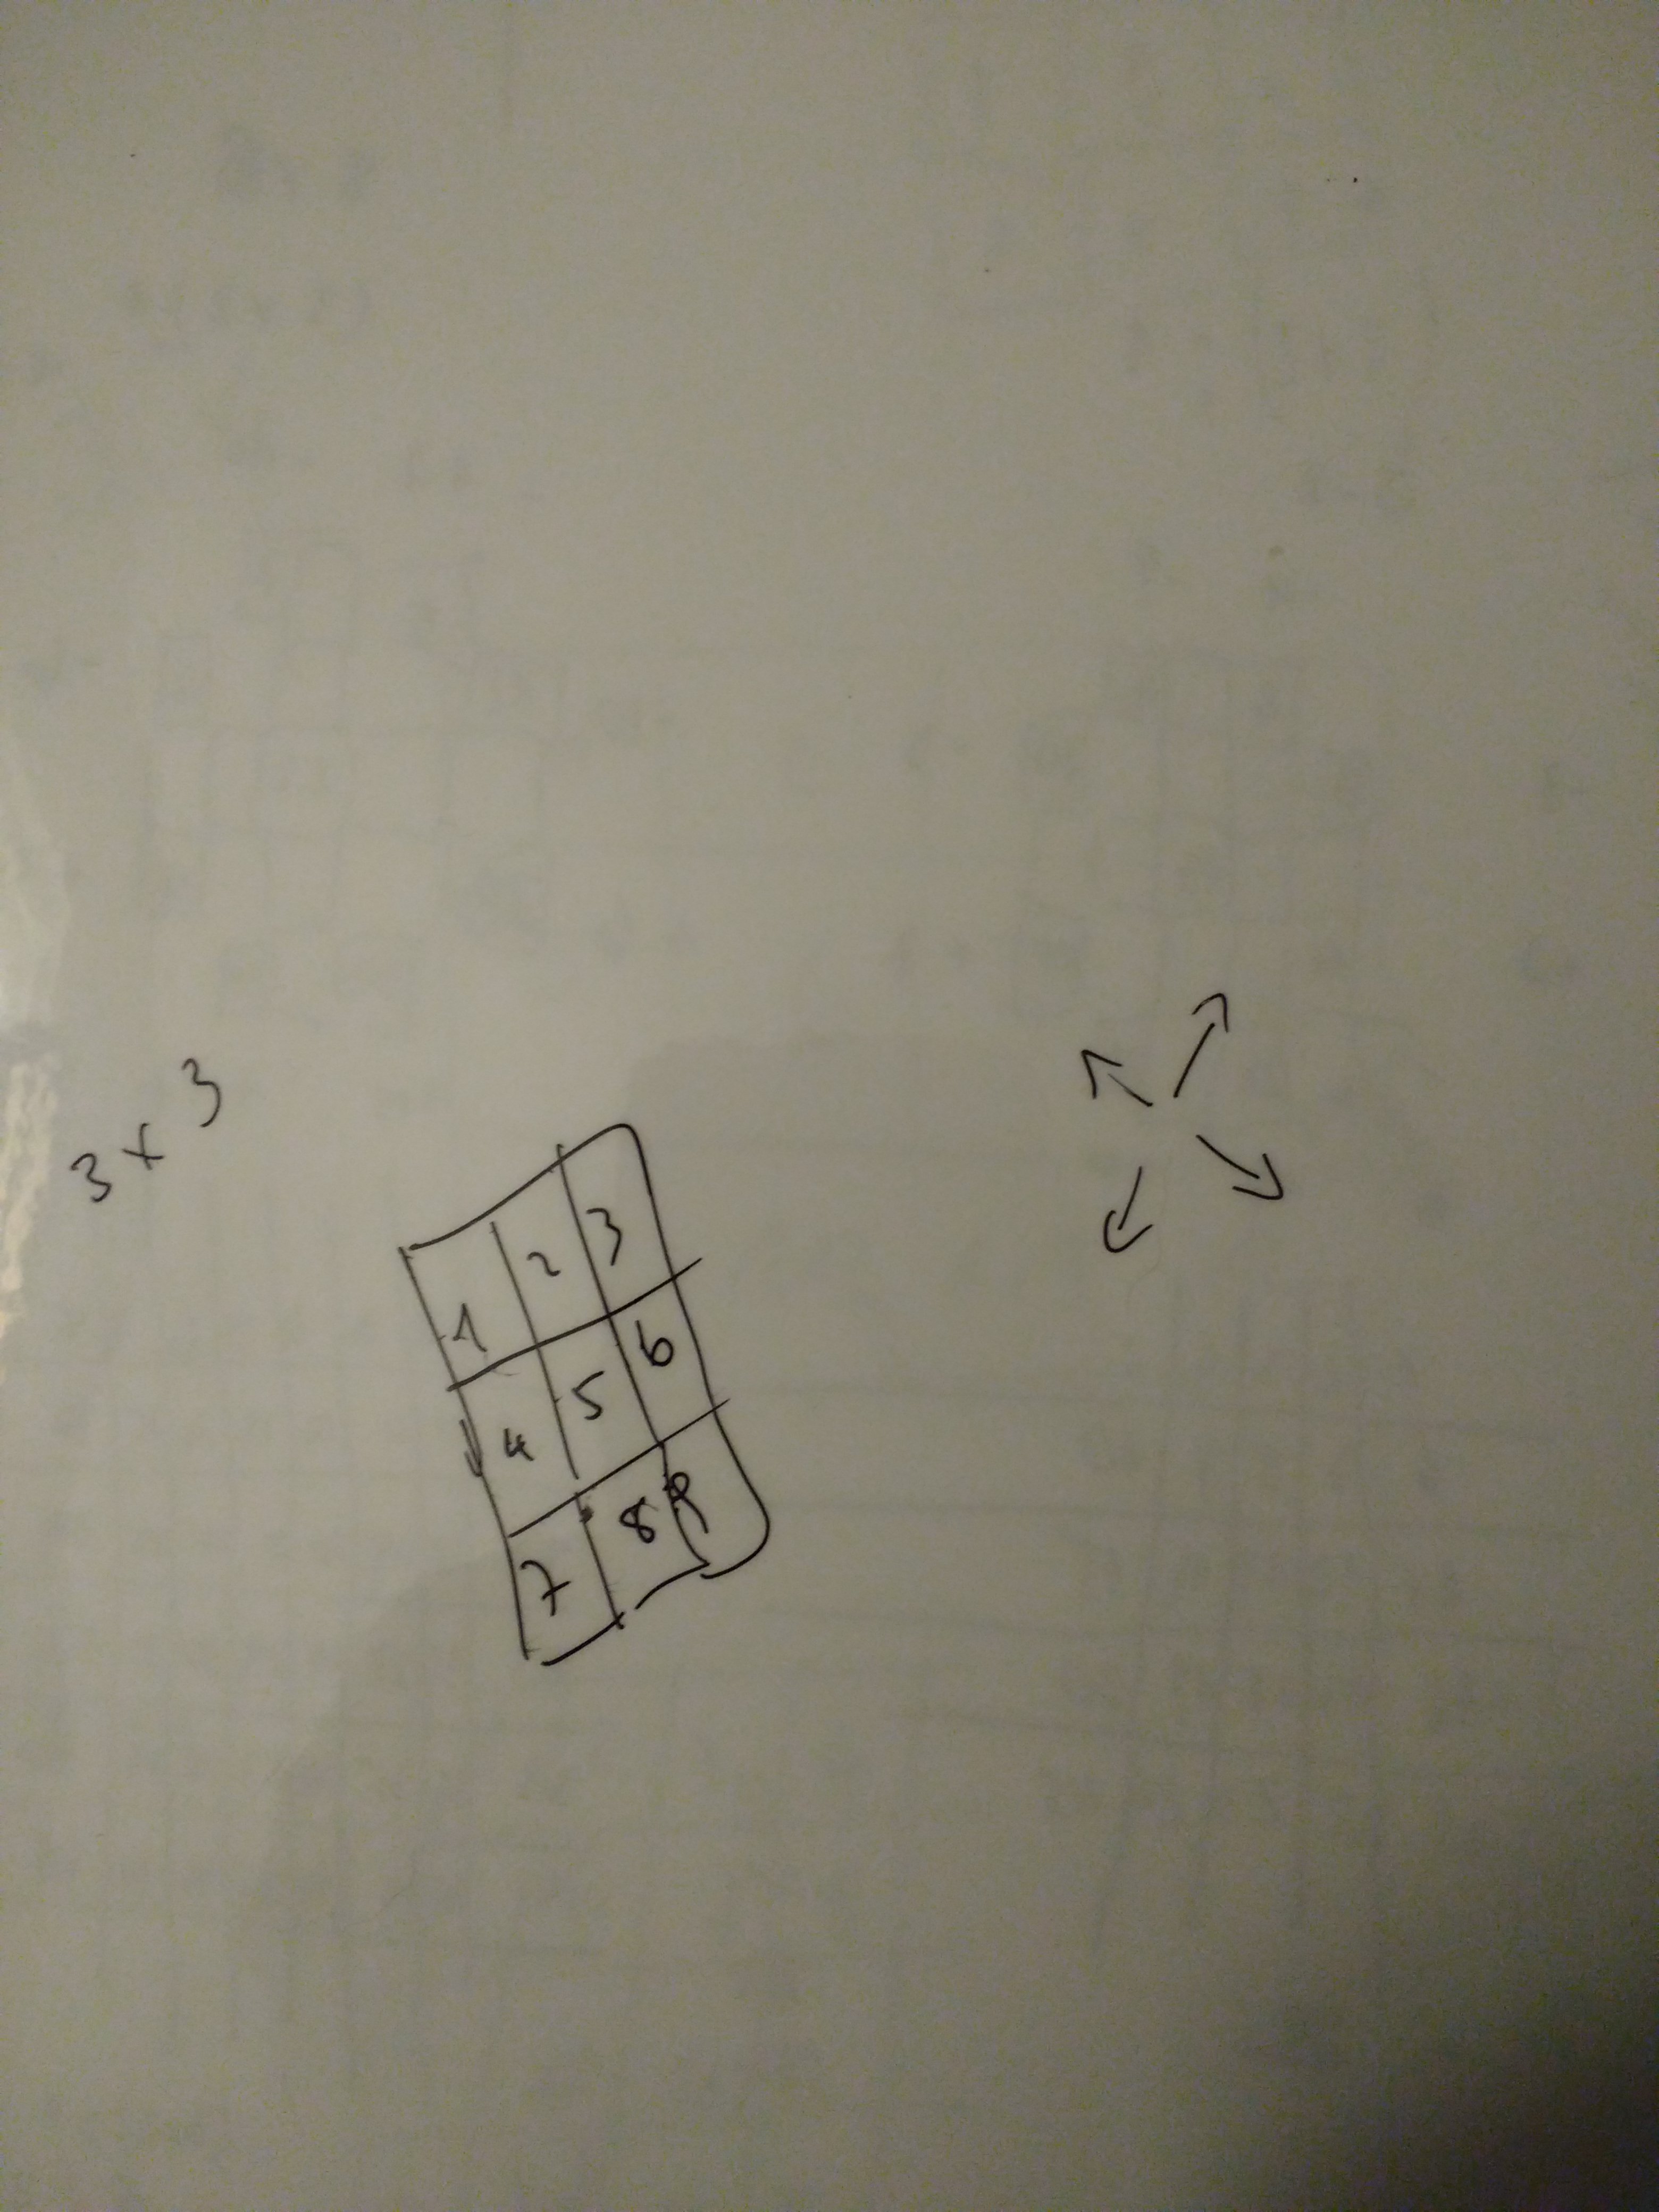 3 x 3
1 2 3
4 5 6
7 8 9